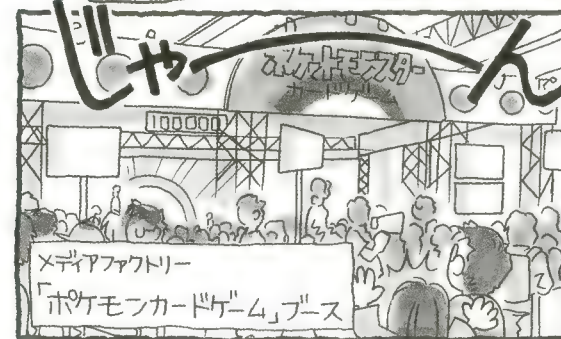 じゃーん
ポケットモンスター
カードゲー
100000
メディアファクトリー
「ポケモンカードゲーム」ブース